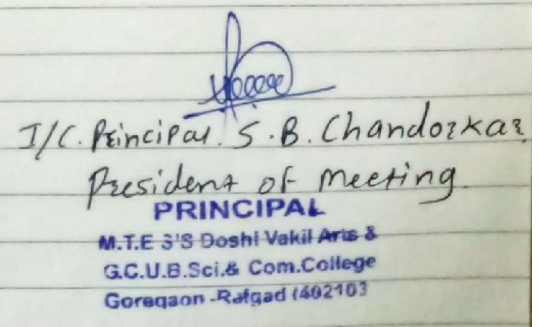 I/C. Principal. S. B. Chandorkar
President of Meeting.
PRINCIPAL
M.T.E S'S Doshi Vakil Arts &
G.C.U.B.Sci.& Com.College
Goregaon -Raigad (402103